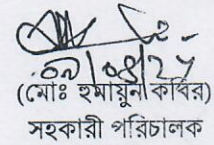 ০৯/০৪/২৭
(মোঃ হুমায়ুন কবির)
সহকারী পরিচালক